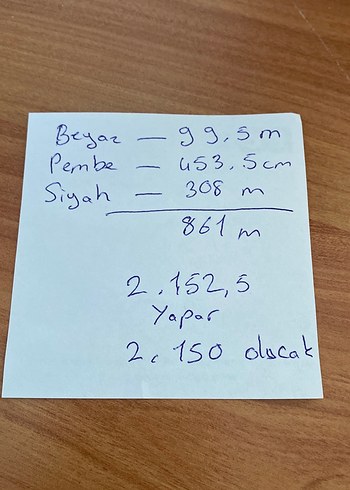 Beyaz — 99,5 m
Pembe — 453.5 cm
Siyah — 308 m
861 m
2.152,5
Yapar
2.150 olucak